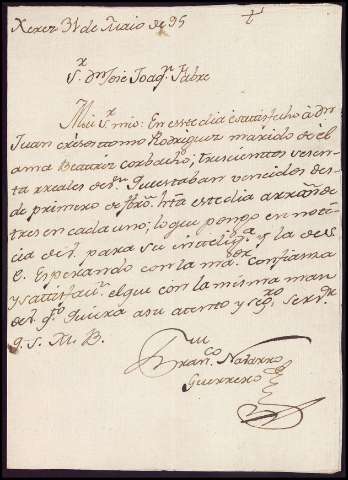 Xerez 31 de Maio de 95 +
Sr. Dn Jose Joaqn. Fabre
Mui Sr. mio: En este dia è satisfecho à Dn
Juan Crisostomo Rodriguez marido de el
ama Beatriz Corbacho; trescientos sesen
ta rreales de vn. que estaban vencidos des-
de primero de Fbro. hta este dia à rrazn. de
tres en cada uno; lo que pongo en noti
cia de V. para su intelig.a y la de
Esperando con la mar. confianza
y satisfacn. el que con la misma man
de V. qto. quiera a su atento y sego. servr.
q. S. M. B.
Franco. Navarro
Guerrero